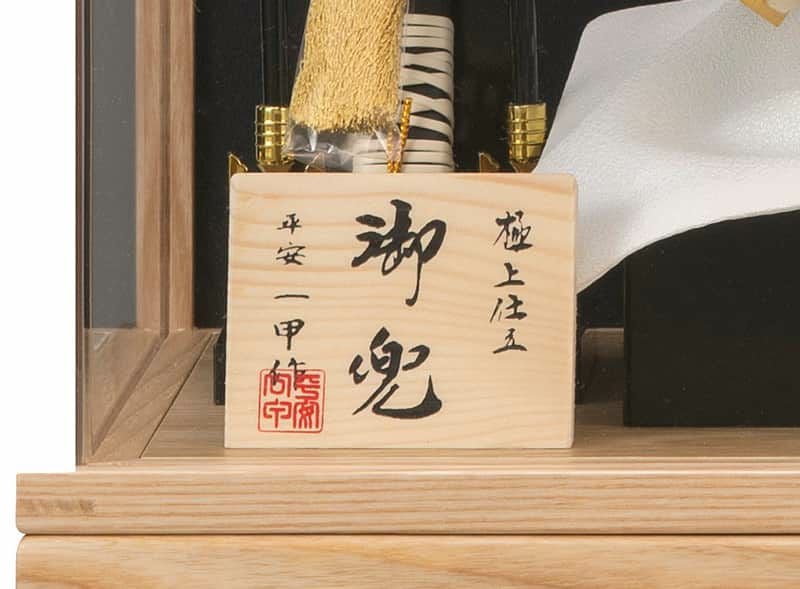 極上仕立
御兜
平安一甲作